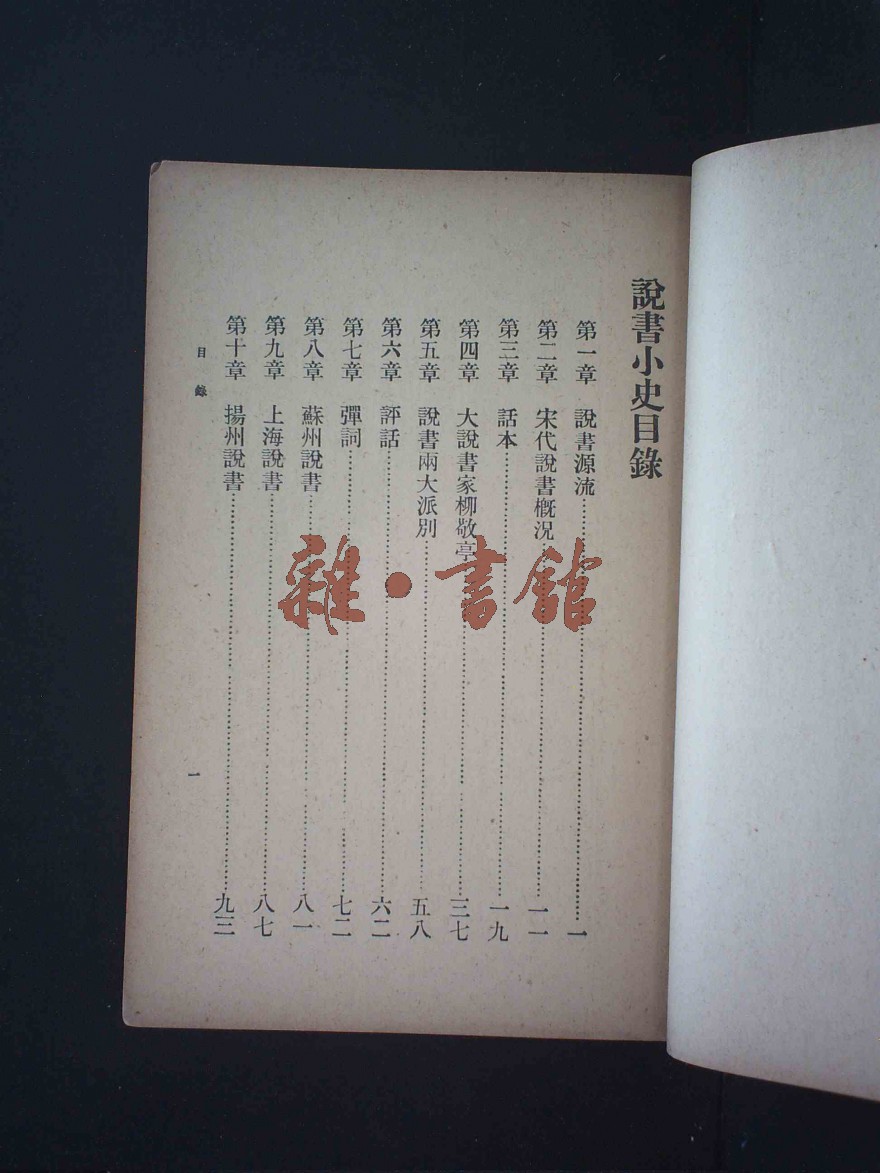 說書小史目錄
第一章 說書源流……一
第二章 宋代說書概況……一一
第三章 話本……一九
第四章 大說書家柳敬亭……三七
第五章 說書兩大派別……五八
第六章 評話……六二
第七章 彈詞……七二
第八章 蘇州說書……八一
第九章 上海說書……八七
第十章 揚州說書……九三
目錄
一
雜·書館